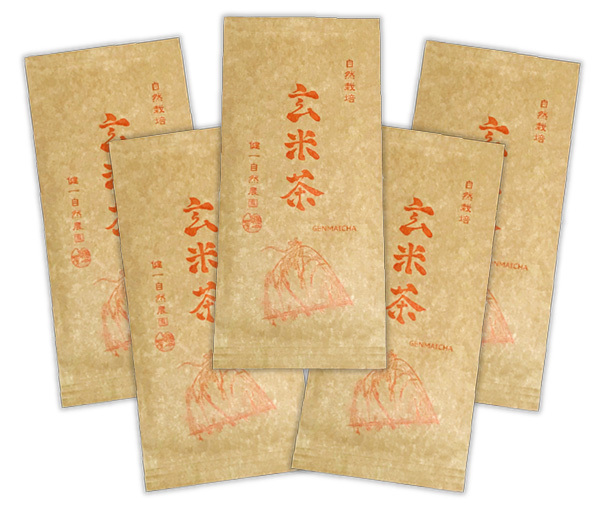 自然栽培
玄米茶
健一自然農園
GENMAICHA
自然栽培
玄米茶
健一自然農園
玄米茶
健一自然農園
自然栽培
玄米茶
GENMAICHA
自然栽培